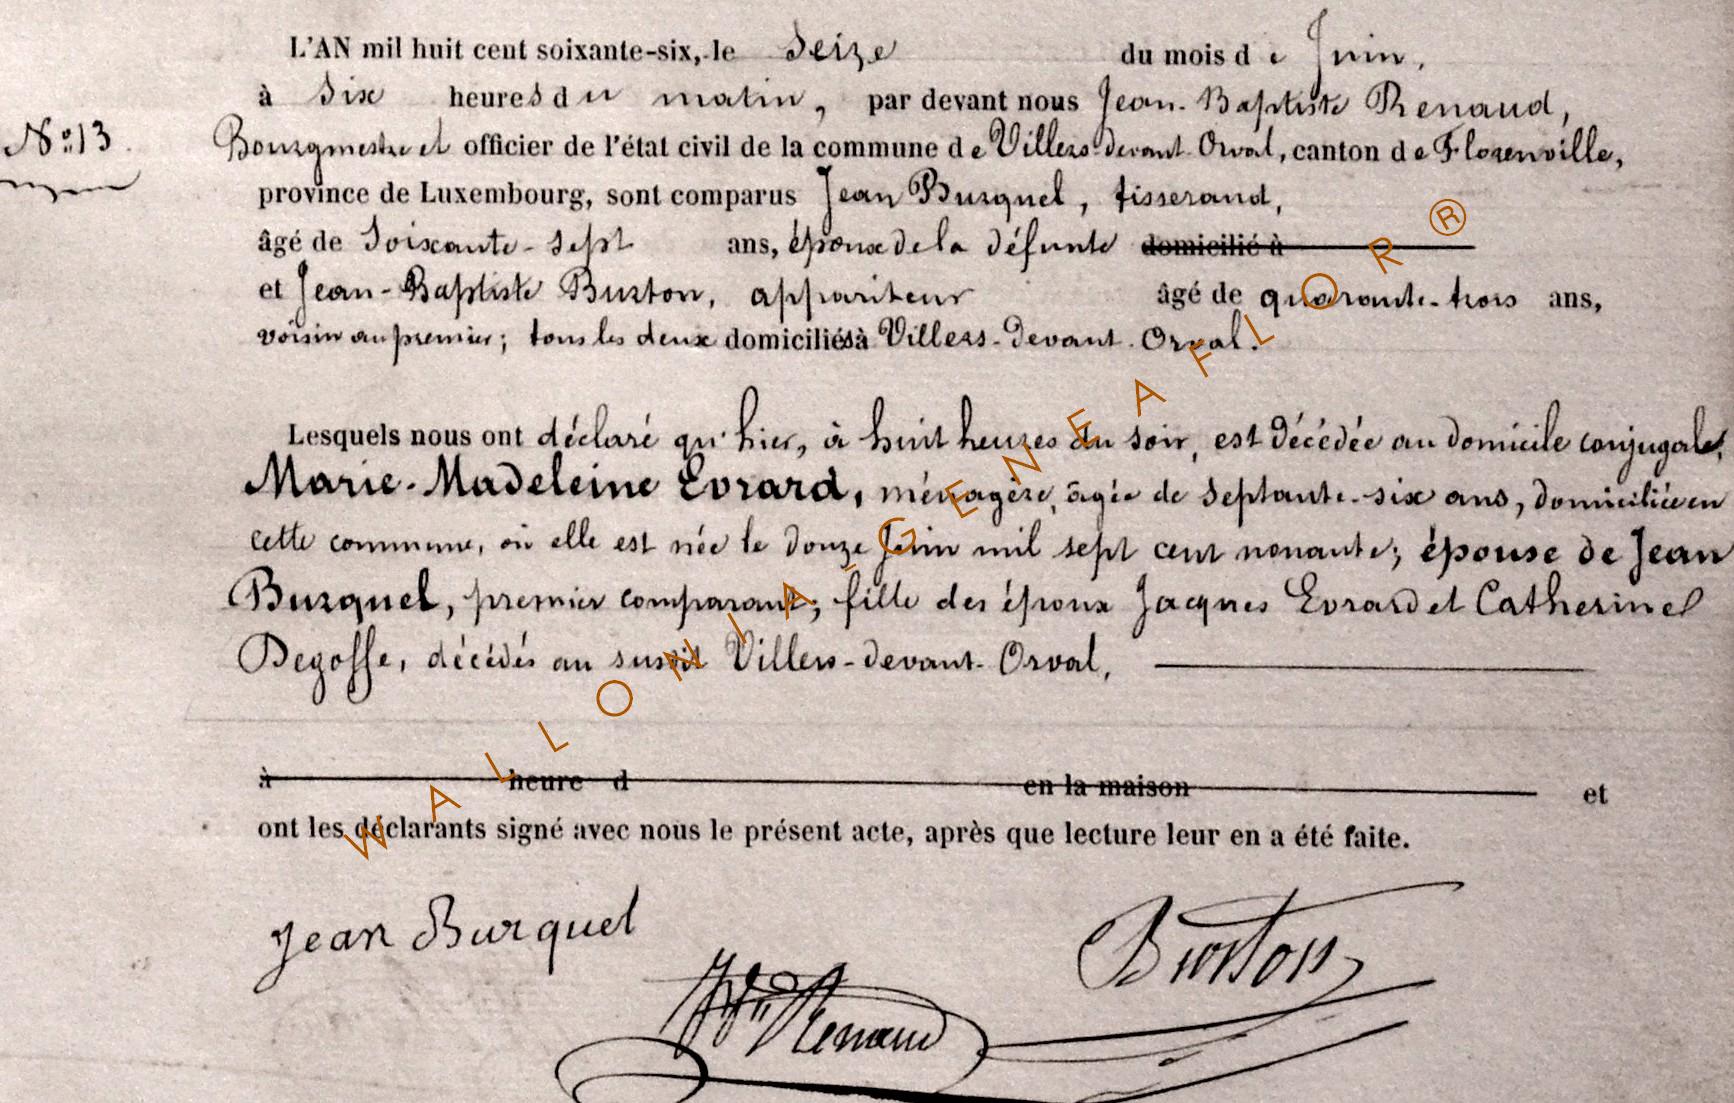 L'AN mil huit cent soixante-six, le seize du mois de Juin,
à six heures du matin, par devant nous Jean-Baptiste Renaud,
N° 13
Bourgmestre et officier de l'état civil de la commune de Villers-devant-Orval, canton de Florenville,
province de Luxembourg, sont comparus Jean Burquel, tisserand,
âgé de soixante-sept ans, époux de la défunte domicilié à
et Jean-Baptiste Burton, appariteur âgé de quarante-trois ans,
voisin au premier; tous les deux domiciliés à Villers-devant-Orval.
Lesquels nous ont déclaré qu'hier, à huit heures du soir, est décédée au domicile conjugale,
Marie-Madeleine Evrard, ménagère, âgée de septante-six ans, domiciliée en
cette commune, où elle est née le douze Juin mil sept cent nonante; épouse de Jean
Burquel, premier comparant; fille des époux Jacques Evrard et Catherine
Degoffe, décédés au susdit Villers-devant-Orval,
à heure d en la maison et
ont les déclarants signé avec nous le présent acte, après que lecture leur en a été faite.
Jean Burquel
Burton
JBte Renaud
WALLONIA-GENEAFLOR®